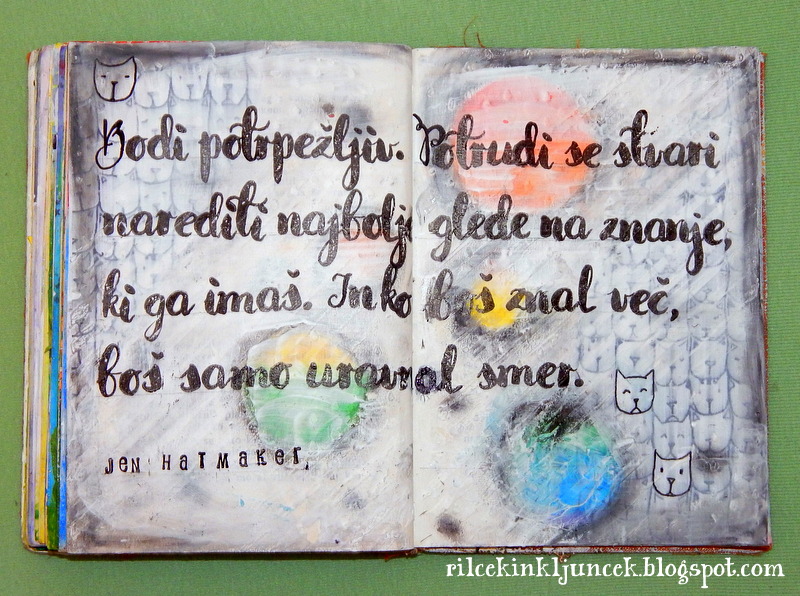 Bodi potrpežljiv. Potrudi se stvari
narediti najbolje glede na znanje,
ki ga imaš. In ko boš znal več,
boš samo uravnal smer.
JEN HATMAKER,
rilcekinkljuncek.blogspot.com